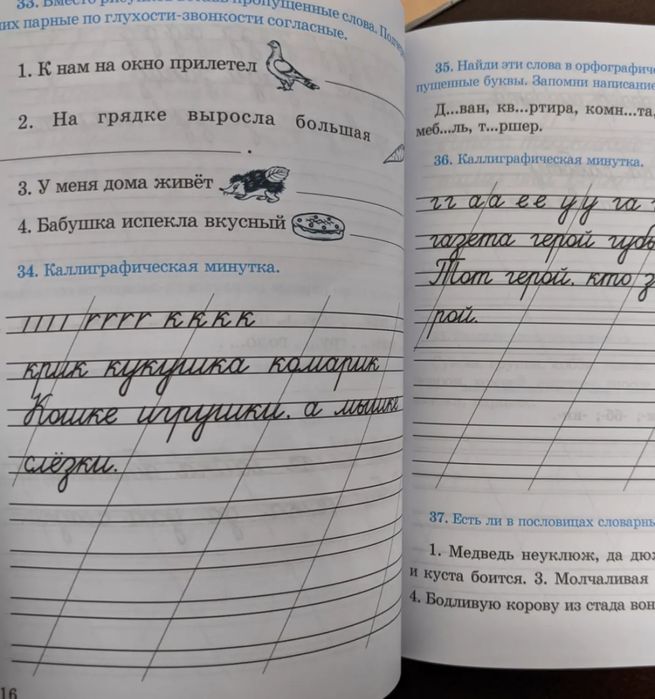 33. Вместо рисунков вставь пропущенные слова.
них парные по глухости-звонкости согласные.
1. К нам на окно прилетел
2. На грядке выросла большая
.
3. У меня дома живёт
4. Бабушка испекла вкусный
34. Каллиграфическая минутка.
гггг кккк
крик кукушка комарик
Кошке игрушки, а мышке
слёзки.
16
35. Найди эти слова в
пущенные буквы. Запомни написание
Д...ван, кв...ртира, комн...та,
меб...ль, т...ршер.
36. Каллиграфическая минутка.
гг аа ее уу га
газета герой
Тот герой, кто
рой.
37. Есть ли в пословицах
1. Медведь неуклюж, да
и куста боится. 3. Молчаливая
4. Бодливую корову из стада вон